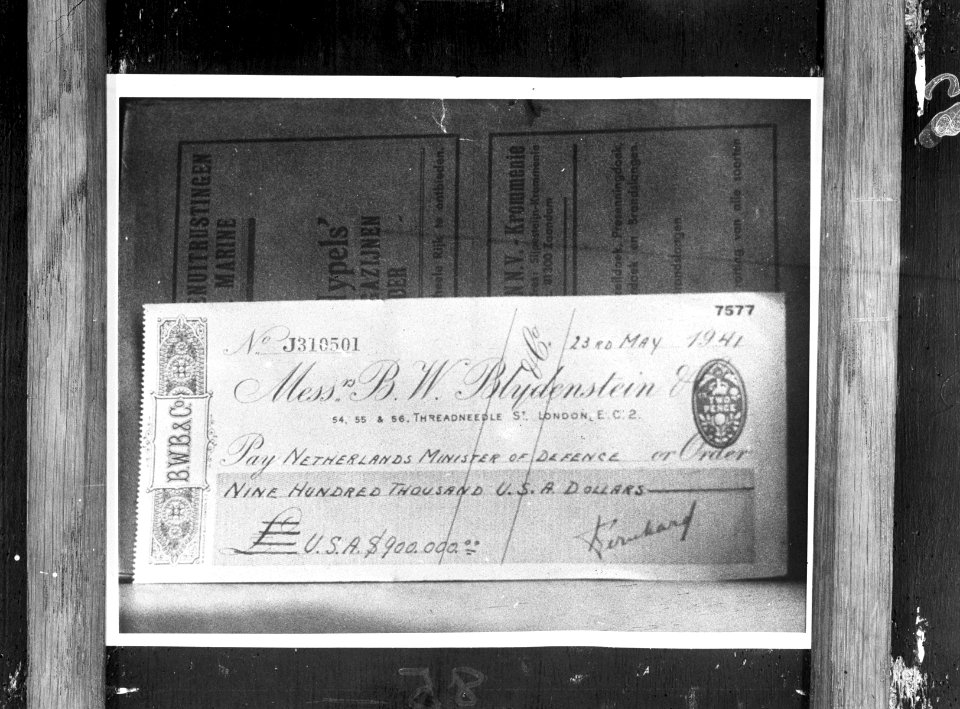 NUITRUSTINGEN
MARINE
Typels'
GAZIJNEN
N.V. - Krommenie
7577
No J310501
23RD MAY 1941
& Co.
Messrs B. W. Blydenstein &
54, 55 & 56, THREADNEEDLE ST. LONDON, E.C.2.
TWO
PENCE
BWB&Co
Pay NETHERLANDS MINISTER OF DEFENCE or Order
NINE HUNDRED THOUSAND U.S.A. DOLLARS
£ U.S.A. $900.000.00
Bernhard